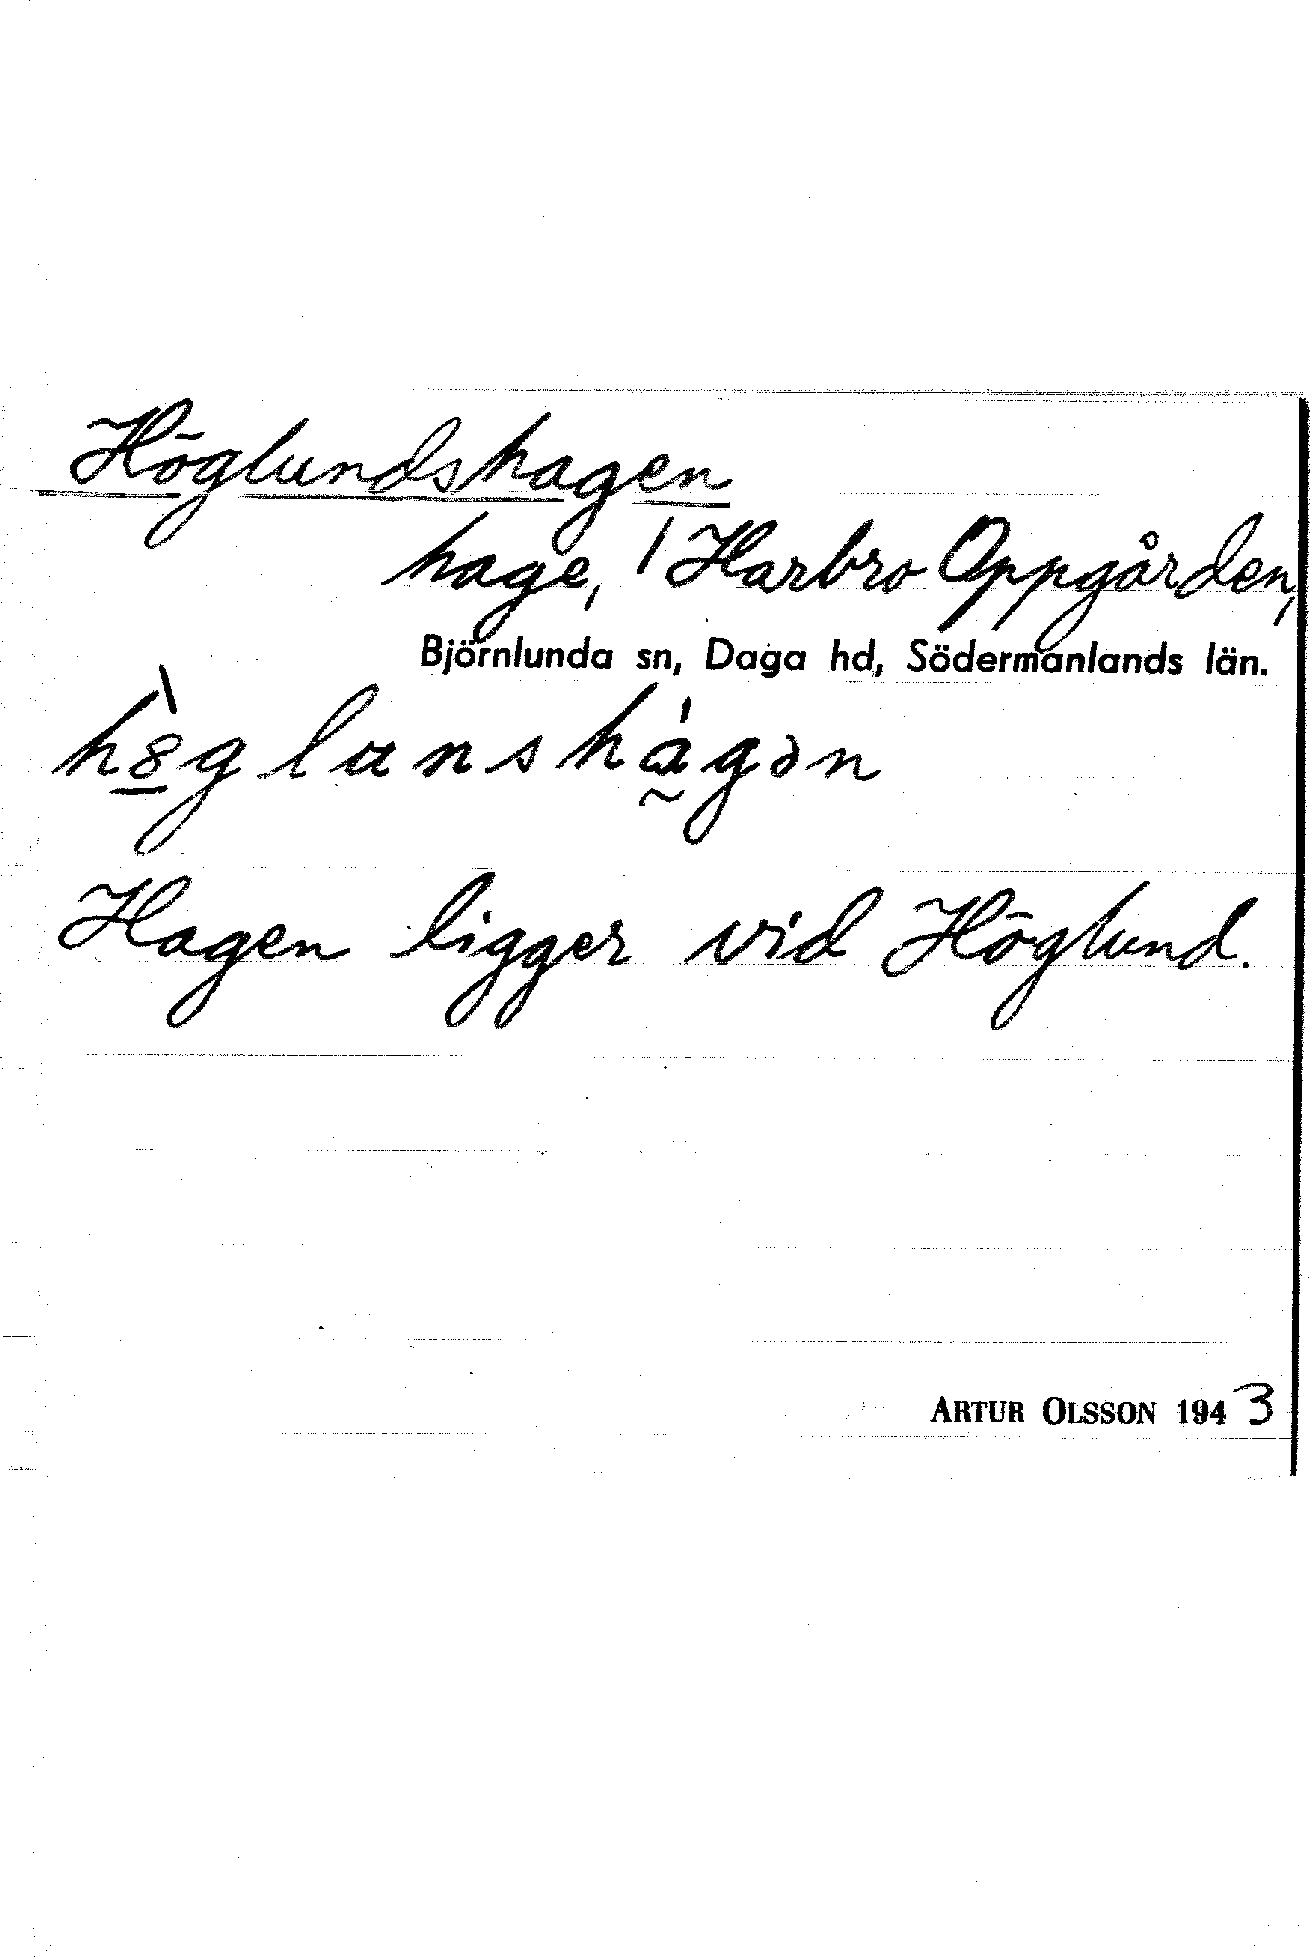 Höglundshagen
hage, 1 Harbro Oppgården,
Björnlunda sn, Daga hd, Södermanlands län.
Hagen ligger vid Höglund.
ARTUR OLSSON 1943